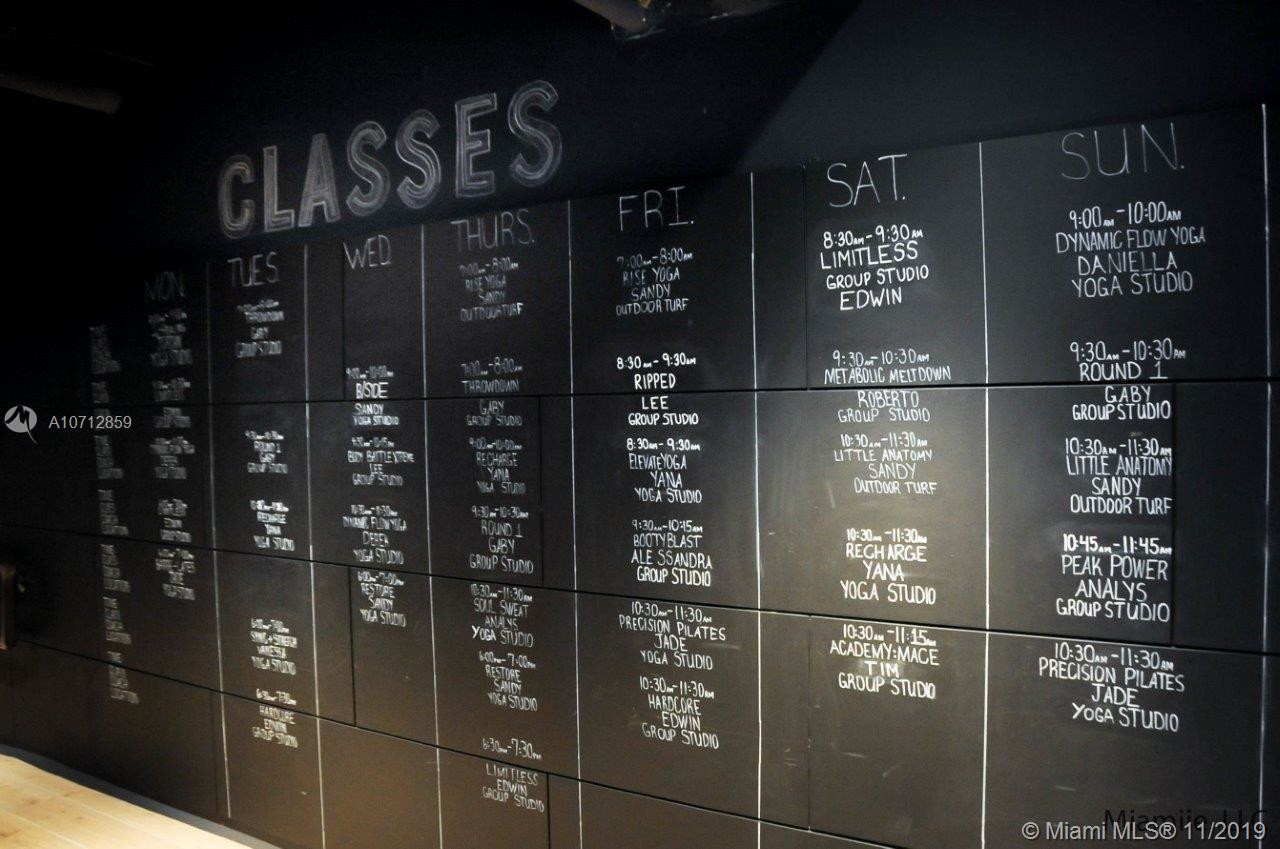 CLASSES
MON
TUES
THROWDOWN
GABY
GROUP STUDIO
ROUND 1
GABY
GROUP STUDIO
RECHARGE
YANA
YOGA STUDIO
VANESSA
YOGA STUDIO
6:30PM-7:30PM
HARDCORE
EDWIN
GROUP STUDIO
WED.
9:00AM-10:00AM
B/SIDE
SANDY
YOGA STUDIO
9:30AM-10:15AM
BODY BATTLE XTREME
LEE
GROUP STUDIO
10:30AM-11:30AM
DYNAMIC FLOW YOGA
DEREK
YOGA STUDIO
6:00PM-7:00PM
RESTORE
SANDY
YOGA STUDIO
THURS.
7:00AM-8:00AM
RISE YOGA
SANDY
OUTDOOR TURF
7:00AM-8:00AM
THROWDOWN
GABY
GROUP STUDIO
9:00AM-10:00AM
RECHARGE
YANA
YOGA STUDIO
9:30AM-10:30AM
ROUND 1
GABY
GROUP STUDIO
10:30AM-11:30AM
SOUL SWEAT
ANALYS
YOGA STUDIO
6:00PM-7:00PM
RESTORE
SANDY
YOGA STUDIO
6:30PM-7:30PM
LIMITLESS
EDWIN
GROUP STUDIO
FRI.
7:00AM-8:00AM
RISE YOGA
SANDY
OUTDOOR TURF
8:30AM-9:30AM
RIPPED
LEE
GROUP STUDIO
8:30AM-9:30AM
ELEVATE YOGA
YANA
YOGA STUDIO
9:30AM-10:15AM
BOOTY BLAST
ALESSANDRA
GROUP STUDIO
10:30AM-11:30AM
PRECISION PILATES
JADE
YOGA STUDIO
10:30AM-11:30AM
HARDCORE
EDWIN
GROUP STUDIO
SAT.
8:30AM-9:30AM
LIMITLESS
GROUP STUDIO
EDWIN
9:30AM-10:30AM
METABOLIC MELTDOWN
ROBERTO
GROUP STUDIO
10:30AM-11:30AM
LITTLE ANATOMY
SANDY
OUTDOOR TURF
10:30AM-11:30AM
RECHARGE
YANA
YOGA STUDIO
10:30AM-11:15AM
ACADEMY:MACE
TIM
GROUP STUDIO
SUN.
9:00AM-10:00AM
DYNAMIC FLOW YOGA
DANIELLA
YOGA STUDIO
9:30AM-10:30AM
ROUND 1
GABY
GROUP STUDIO
10:30AM-11:30AM
LITTLE ANATOMY
SANDY
OUTDOOR TURF
10:45AM-11:45AM
PEAK POWER
ANALYS
GROUP STUDIO
10:30AM-11:30AM
PRECISION PILATES
JADE
YOGA STUDIO
A10712859
Miamiio, LLC
© Miami MLS® 11/2019